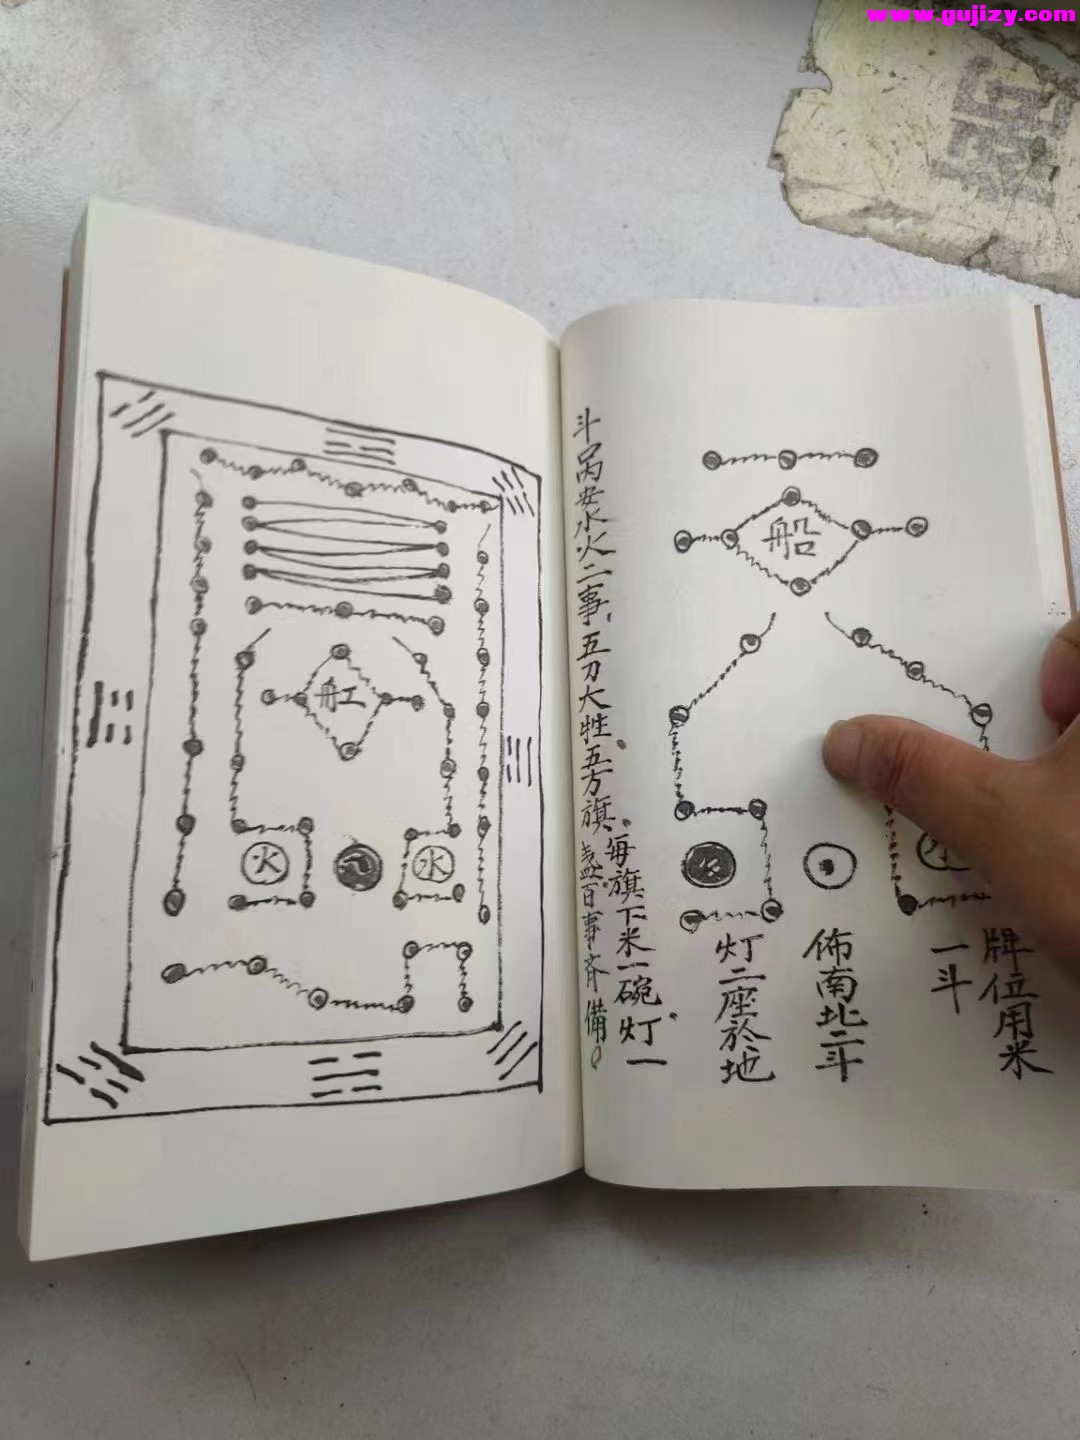 www.gujizy.com
船
水
火
牌位用米
一斗
佈南北二斗
灯二座於地
每旗下米一碗灯一
斗内安水火二事五刀大牲五方旗
盏百事齐備
舡
火
水